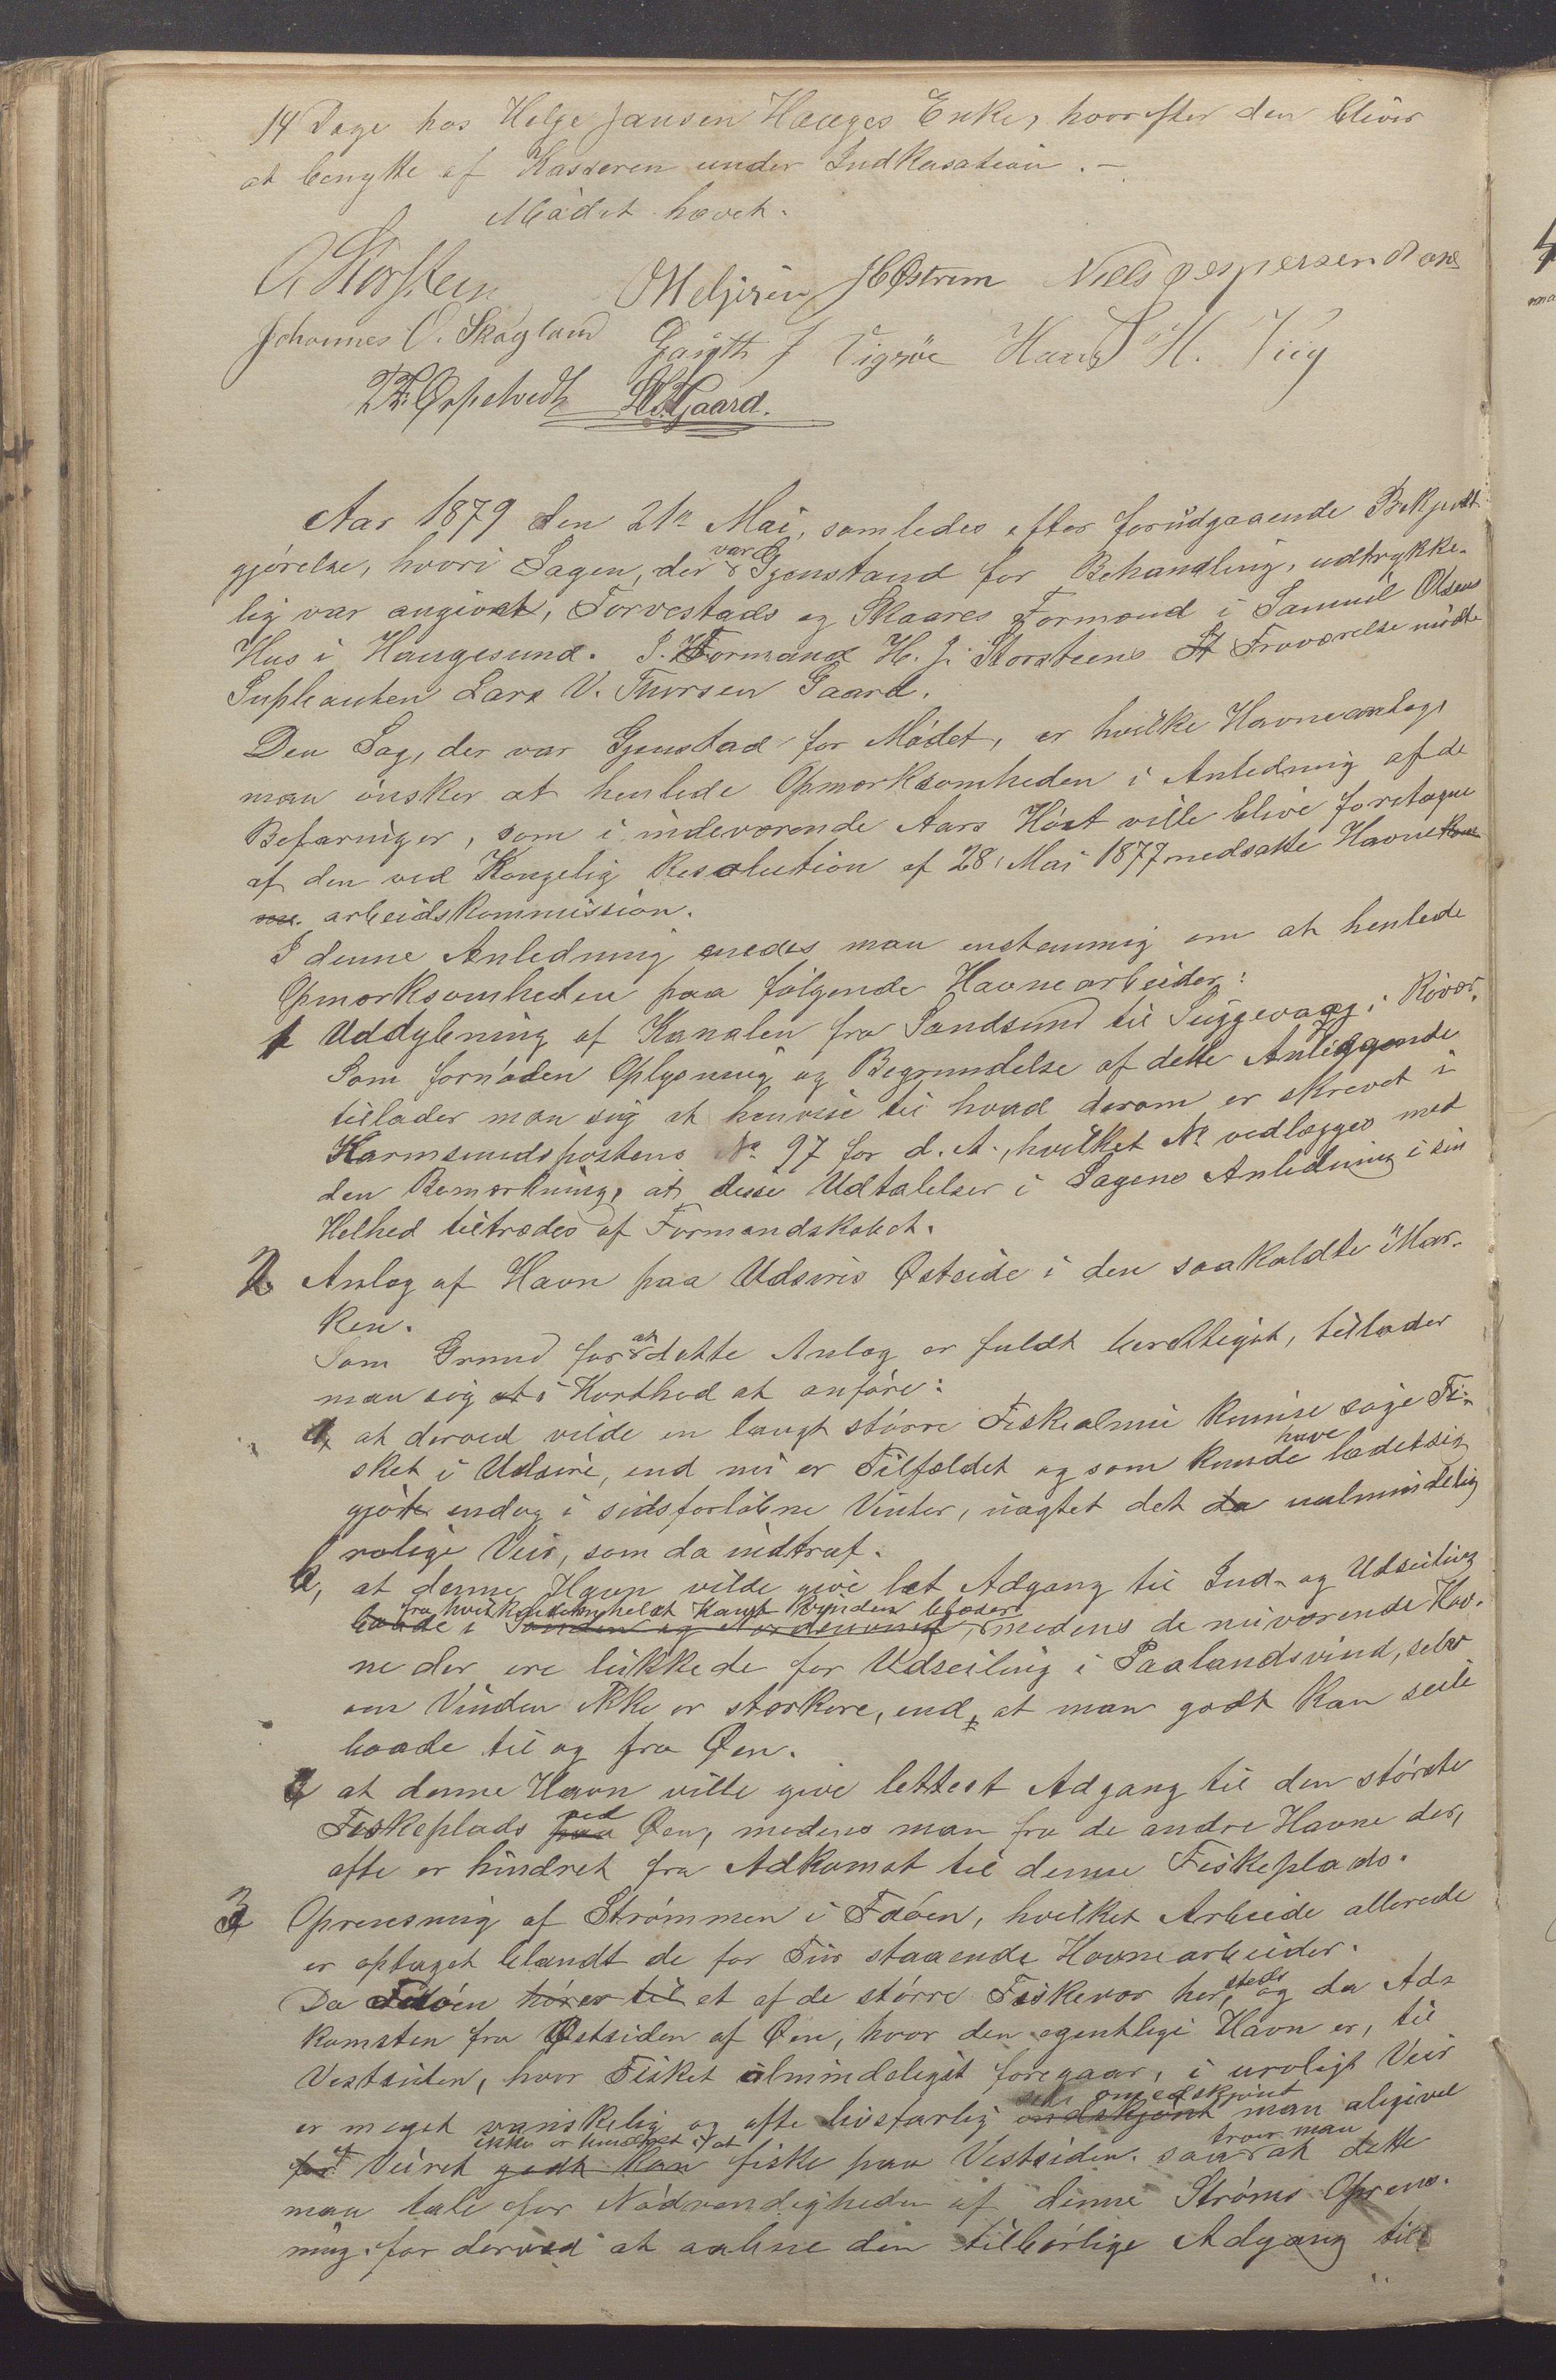 14 Dage hos Helge Jansen Hauges Enke, hvorefter den bliver
at benytte af Kasseren under Indkasation. -
Mødet hævet.
O Storsteen OMeljeren JCØstrem Niels Jespersen
Johannes O. Skogland Gauth J Vigsøe Hans H. Viig
Oppetvedt LVTGaard.
Aar 1879 den 21de Mai, samledes efter forudgaaende Bekjendt
gjørelse, hvori Sagen, der var Gjenstand for Behandling, udtrykke-
lig var angivet, Torvestads og Skaares Formænd i Samuel Olsens
Hus i Haugesund. I Formand H. J. Storsteens Fraværelse mødte
Supleanten Lars V. Thorsen Gaard.
Den Sag, der var Gjenstad for Mødet, er hvilke Havneanlæg,
man ønsker at henlede Opmærksomheden i Anledning af de
Befaringer, som i indeværende Aars Høst ville blive foretagne
af den ved Kongelig Resolution af 28. Mai 1877 nedsatte Havne
arbeidskommission.
I denne Anledning enedes man enstemmig om at henlede
Opmærksomheden paa følgende Havnearbeider:
1 Uddybning af Kanalen fra Sandsund til Suggevaag i Røvær.
Som fornøden Oplysning og Begrundelse af dette Anliggende
tillader man sig at henvise til hvad derom er skrevet i
Karmsundspostens No. 97 for d. A., hvilket No vedlægges med
den Bemærkning, at disse Udtalelser i Sagens Anledning i sin
Helhed tiltrædes af Formandskabet.
2 Anlæg af Havn paa Udsires Østside i den saakaldte "Mar-
ken.
Som Grund for at dette Anlæg er fuldt berettiget, tillader
man sig i Korthed at anføre:
a, at derved vilde en langt større Fiskealmue kunne søge Fi-
sket i Udsire, end nu er Tilfældet og som kunde have ladet sig
gjøre endog i sidsforløbne Vinter, uagtet det da ualmindelig
rolige Veir, som da indtraf.
b, at denne Havn vilde give let Adgang til Ind- og Udseiling
fra hvilkensomhelst Kant Vinden blæser
baade i Sønden og Nordenvind, medens de nuværende Hav-
ne der ere lukkede for Udseiling i Paalandsvind, selv
om Vinden ikke er stærkere, end at man godt kan seile
baade til og fra Øen.
c at denne Havn ville give lettest Adgang til den største
Fiskeplads paa ved Øen, medens man fra de andre Havne der,
ofte er hindret fra Adkomst til denne Fiskeplads.
3 Oprensning af Strømmen i Fæøen, hvilket Arbeide allerede
er optaget blandt de for Tur staaende Havnearbeider.
Da Fæøen hører til et af de større Fiskevær her, steds og da Ad-
komsten fra Østsiden af Øen, hvor den egentlige Havn er, til
Vestsiden, hvor Fisket almindeligst foregaar, i uroligt Veir
er meget vanskelig og ofte livsfarlig endskjønt man aligivel
for af Veiret ikke er hindret i at godt kan fiske paa Vestsiden. saa troer man at dette
maa tale for Nødvendigheden af denne Strøms Oprens-
ning for derved at aabne den tilbørlige Adgang til